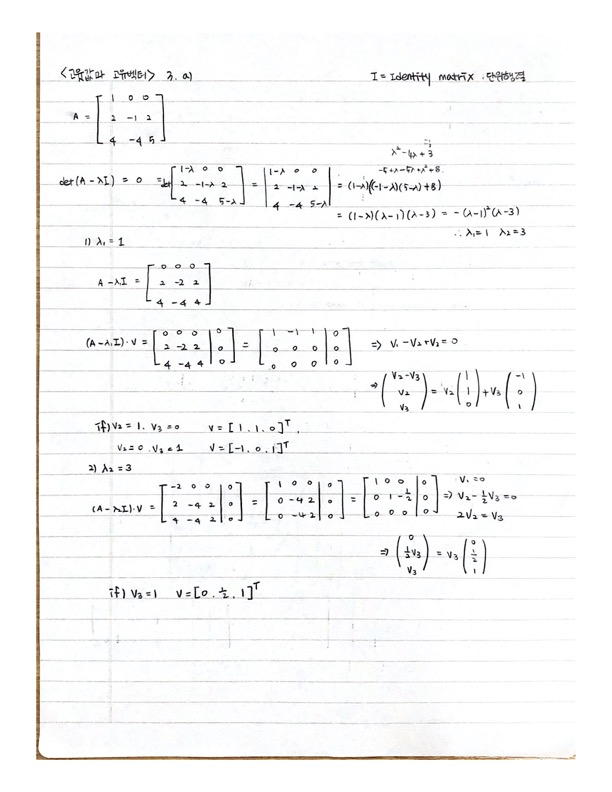 <고유값과 고유벡터> 3. a) I = Identity matrix . 단위행렬
A = [ 1 0 0
2 -1 2
4 -4 5 ]
λ² - 4λ + 3
-5+λ-5λ+λ²+8
det(A - λI) = 0 = det [ 1-λ 0 0 ; 2 -1-λ 2 ; 4 -4 5-λ ] = | 1-λ 0 0 ; 2 -1-λ 2 ; 4 -4 5-λ | = (1-λ)((-1-λ)(5-λ)+8)
= (1-λ)(λ-1)(λ-3) = -(λ-1)²(λ-3)
∴ λ₁=1 λ₂=3
1) λ₁ = 1
A - λ₁I = [ 0 0 0 ; 2 -2 2 ; 4 -4 4 ]
(A-λ₁I)·V = [ 0 0 0 | 0 ; 2 -2 2 | 0 ; 4 -4 4 | 0 ] = [ 1 -1 1 | 0 ; 0 0 0 | 0 ; 0 0 0 | 0 ] ⇒ V₁-V₂+V₃=0
⇒ ( V₂-V₃ ; V₂ ; V₃ ) = V₂ ( 1 ; 1 ; 0 ) + V₃ ( -1 ; 0 ; 1 )
if) V₂=1. V₃=0 V=[1.1.0]ᵀ.
V₂=0 . V₃=1 V=[-1.0.1]ᵀ
2) λ₂=3
(A-λI)·V = [ -2 0 0 | 0 ; 2 -4 2 | 0 ; 4 -4 2 | 0 ] = [ 1 0 0 | 0 ; 0 -4 2 | 0 ; 0 -4 2 | 0 ] = [ 1 0 0 | 0 ; 0 1 -1/2 | 0 ; 0 0 0 | 0 ] ⇒ V₁=0
V₂-1/2V₃=0
2V₂=V₃
⇒ ( 0 ; 1/2V₃ ; V₃ ) = V₃ ( 0 ; 1/2 ; 1 )
if) V₃=1 V=[0. 1/2. 1]ᵀ